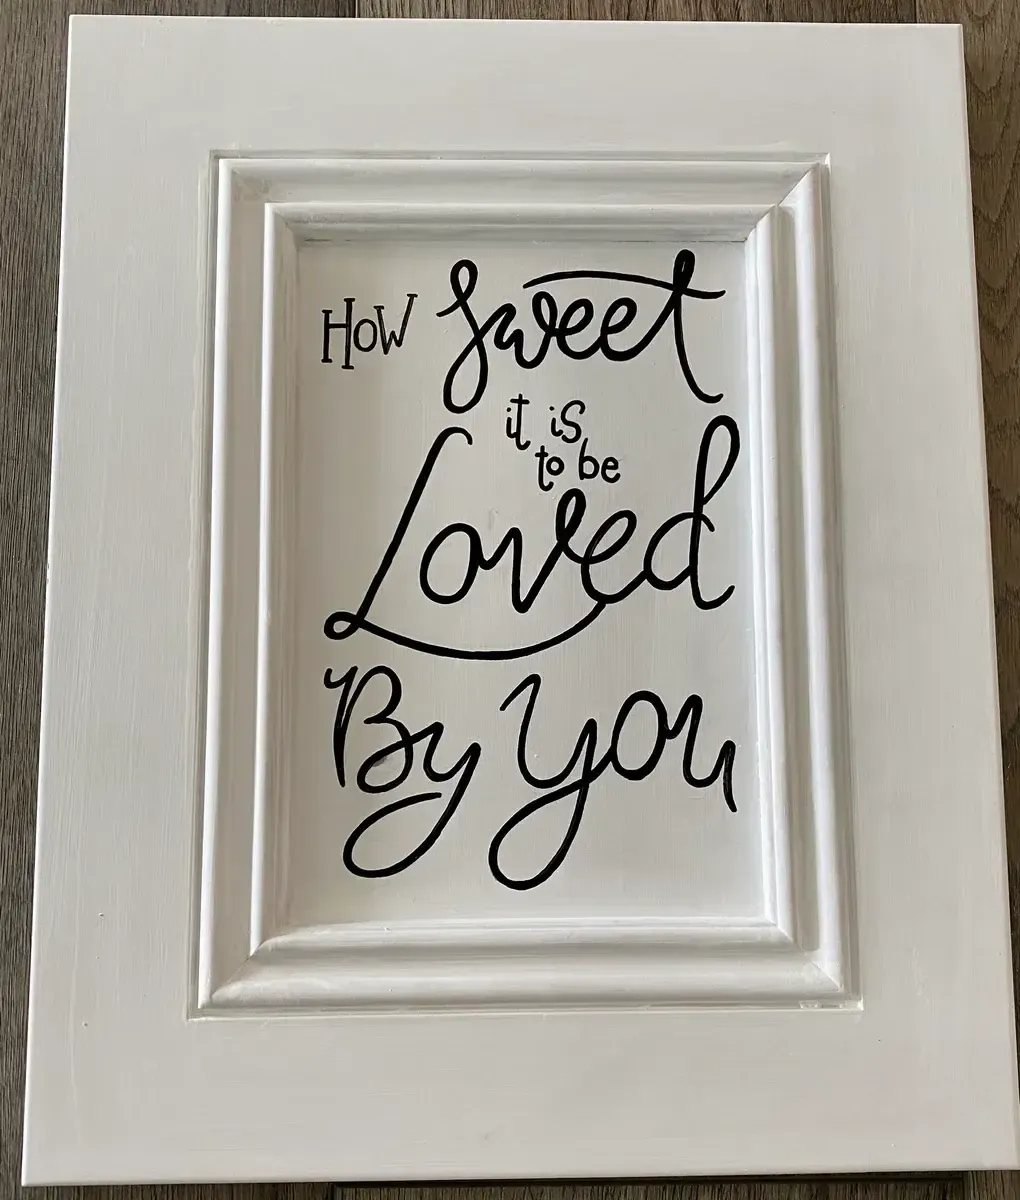 How Sweet
it is
to be
Loved
By You